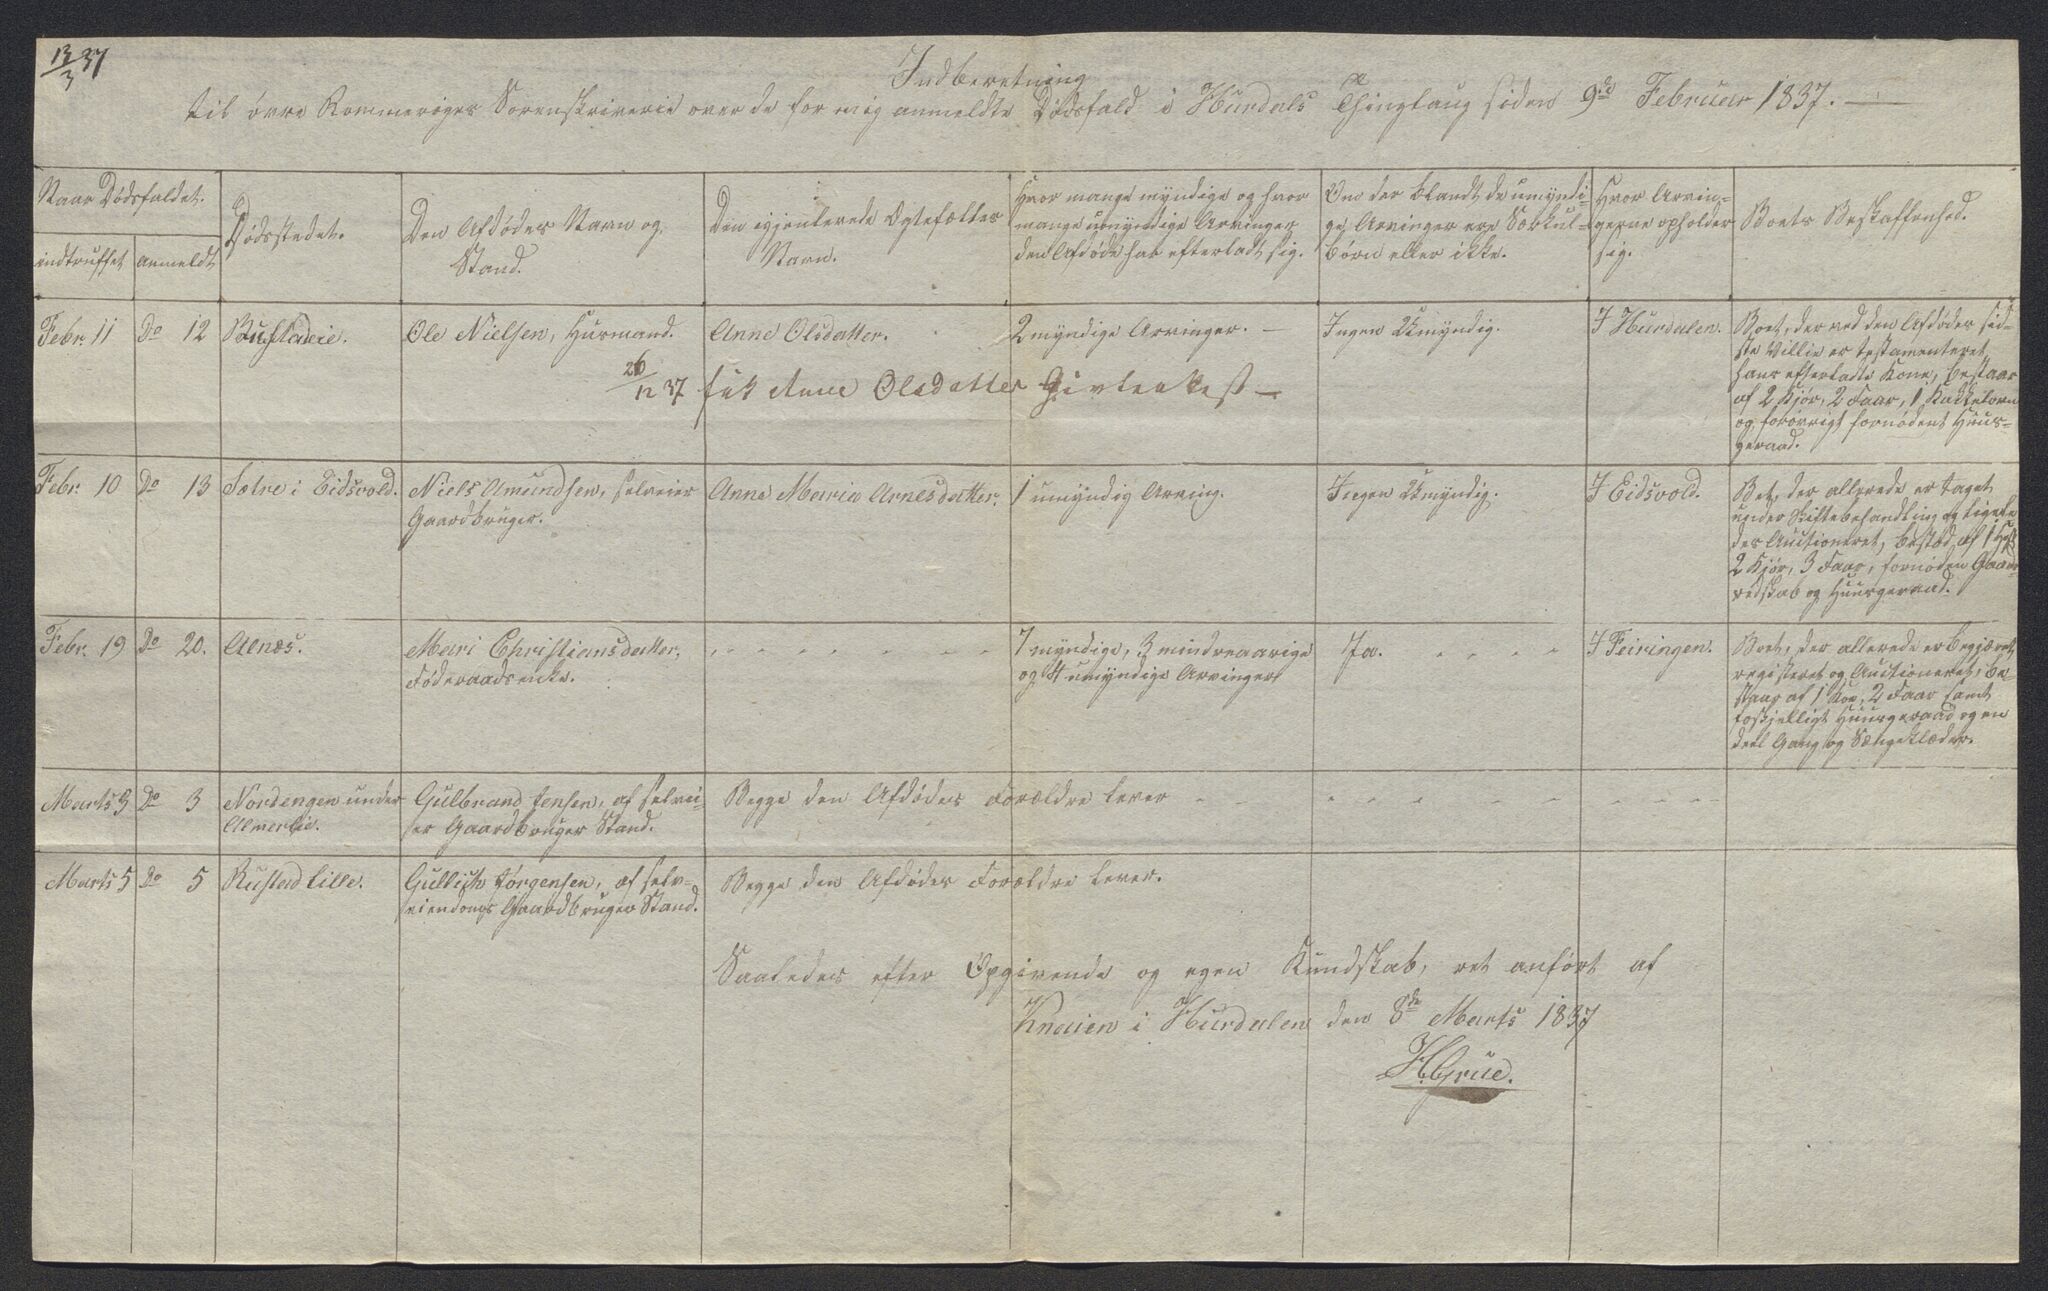 13/3 37
Indberetning
til øvre Rommeriges Sorenskriverie over de for mig anmeldte Dødsfald i Hurdals Thinglaug siden 9de Februar 1837. —
Naar Dødsfaldet.
indtruffet
anmeldt
Dødsstedet.
Den Afdødes Navn og
Stand.
Den igjenlevede Egtefælles
Navn.
Hvor mange myndige og hvor
mange umyndige Arvinger
den Afdøde har efterladt sig.
Om der blandt de umyndi-
ge Arvinger ere Sørkul-
børn eller ikke.
Hvor Arvin-
gerne opholder
sig.
Boets Beskaffenhed.
Febr. 11
Do 12
Ole Nielsen, Husmand.
Anne Olsdatter.
2 myndige Arvinger. —
Ingen Umyndig.
I Hurdalen.
Boet, der ved den Afdødes sid-
ste Villie er testamenteret
hans efterladte Kone, bestaar
af 2 Kjør, 2 Faar, 1 Kakkelovn
og forøvrigt fornødent Huus-
geraad.
26/12 37 fik Anne Olsdatter Givteattest —
Febr. 10
Do 13
Sætre i Eidsvold.
Niels Amundsen, selveier
Gaardbruger.
Anne Maria Arnesdatter.
1 umyndig Arving.
Ingen Umyndig.
I Eidsvold.
Bet, der allerede er taget
under Skiftebehandling og ligele
des Auctioneret, bestod af 1 Hest
2 Kjør, 3 Faar, fornøden Gaards
redskab og Huusgeraad.
Febr. 19
Do 20.
Alnæs.
Mari Christiansdatter,
Føderaadsenke.
7 myndige, 3 mindreaarige
og 4 umyndige Arvinger
Ja.
I Feiringen.
Boet, der allerede er begjæret
registeret og Auctioneret, be-
staar af 1 Koe, 2 Faar samt
foskjelligt Huusgeraad og en
deel Gang og Sængeklæder.
Marts 3
Do 3
Nordengen under
Almerlie.
Gulbrand Jensen, af selvei-
er Gaardbruger Stand.
Begge den Afdødes Forældre lever
Marts 5
Do 5
Rustad lille.
Gullich Jørgensen, af selv-
eiendoms Gaardbruger Stand.
Begge den Afdødes Forældre lever.
Saaledes efter Opgivende og egen Kundskab, ret anført af
Knaien i Hurdalen den 8de Marts 1837
H Grue.